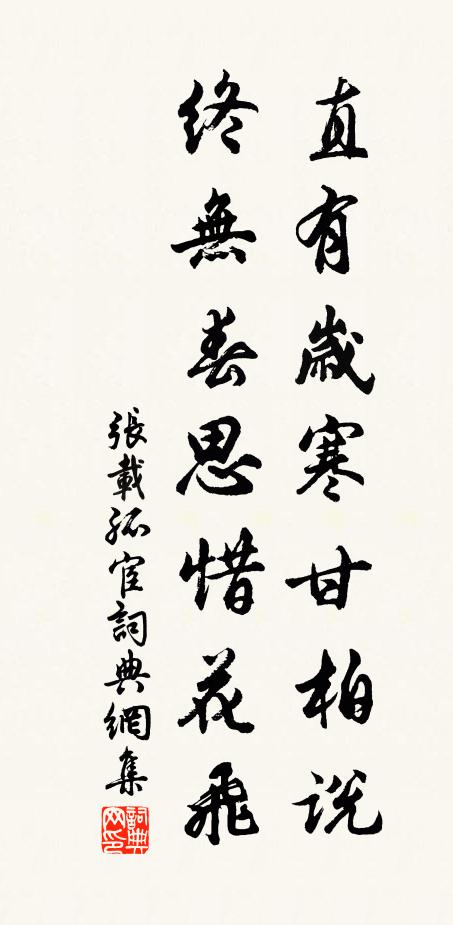 直有歲寒甘柏說
終無春思惜花飛
張載孤宦詞典網集
詞典網印